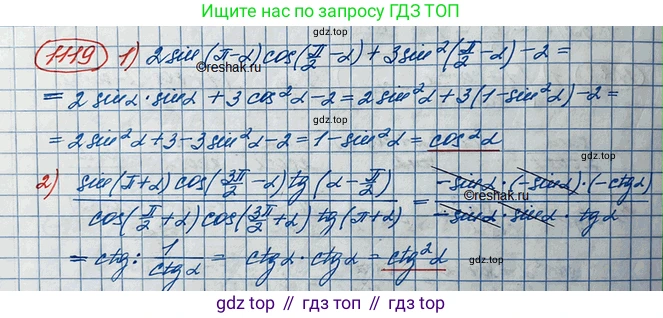 Ищите нас по запросу ГДЗ ТОП
1119 1) 2 sin (π-α) cos(π/2 -α) + 3 sin²(π/2 -α) -2 =
©reshak.ru
= 2 sinα·sinα + 3 cos²α -2 = 2 sin²α + 3(1-sin²α) -2 =
= 2 sin²α + 3 - 3 sin²α -2 = 1 - sin²α = cos²α
2) sin(π+α) cos(3π/2 -α) tg(α - π/2) / cos(π/2 +α) cos(3π/2 +α) tg(π+α) = -sinα·(-sinα)·(-ctgα) / -sinα·sinα·tgα
©reshak.ru
= ctg: 1/ctgα = ctgα·ctgα = ctg²α
gdz top // гдз топ // gdz.top // гдз.топ